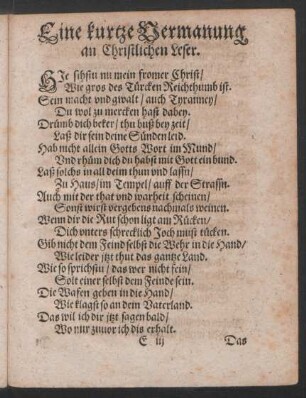 Eine kurtze Vermanung
an Christlichen Leser.
HIe sihstu nu mein fromer Christ/
Wie gros des Türcken Reichthumb ist.
Sein macht vnd gwalt / auch Tyranney/
Du wol zu mercken hast dabey.
Drümb dich beker / thu buß bey zeit/
Laß dir sein deine Sünden leid.
Hab nicht allein Gotts Wort im Mund/
Vnd rhüm dich du habst mit Gott ein bund.
Laß solchs in all deim thun vnd lassn/
Zu Haus / im Tempel / auff der Strassn.
Auch mit der that vnd warheit scheinen/
Sonst wirst vergebens nachmals weinen.
Wenn dir die Rut schon ligt am Rücken/
Dich vnters schrecklich Joch must tücken.
Gib nicht dem Feind selbst die Wehr in die Hand/
Wie leider jtzt thut das gantze Land.
Wie so sprichstu / das wer nicht fein/
Solt einer selbst dem Feinde sein.
Die Wafen geben in die Hand/
Wie klagst so an dein Vaterland.
Das wil ich dir jtzt sagen bald/
Wo nur zuuor ich dis erhalt.
E iij Das